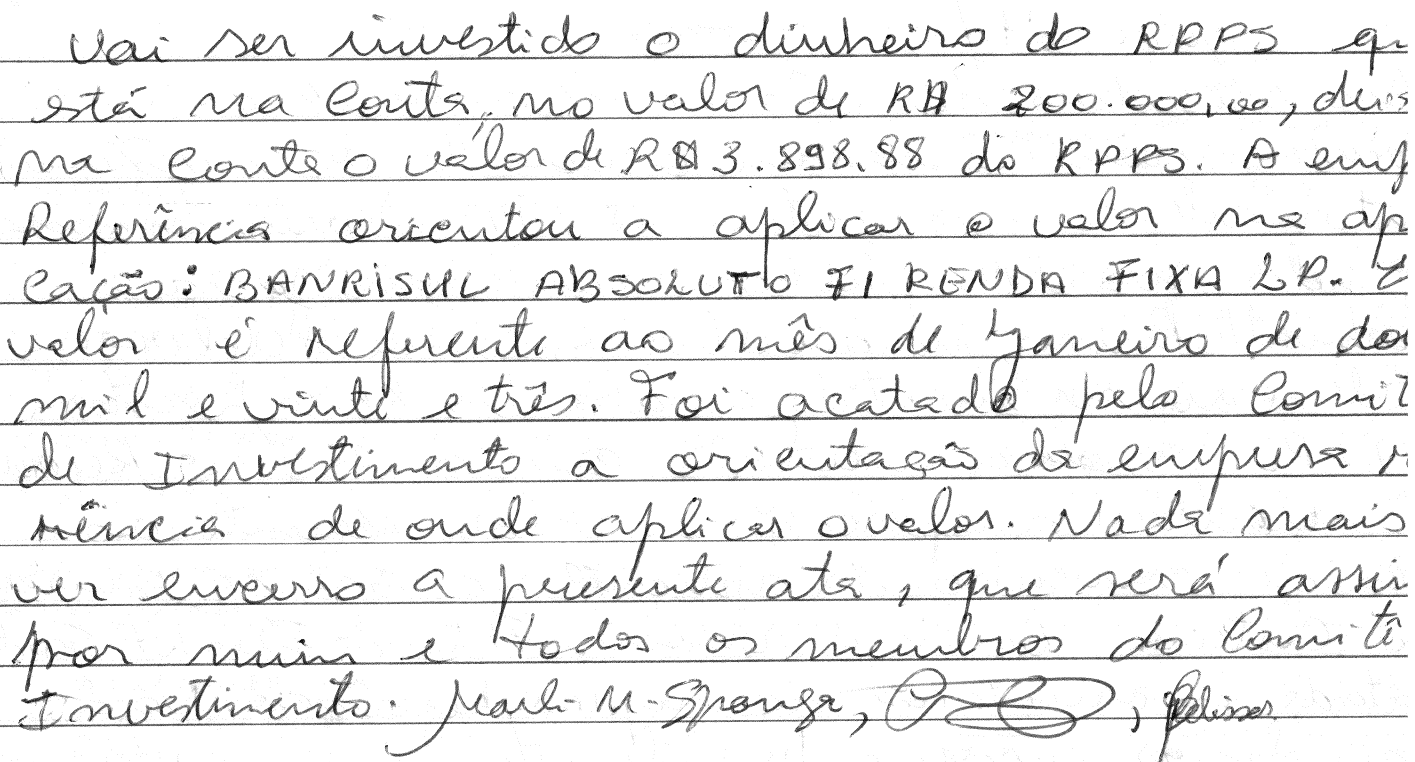 Vai ser investido o dinheiro do RPPS qu
está na Conta, no valor de R$ 200.000,00, deix
na Conta o valor de R$ 3.898.88 do RPPS. A emp
Referência orientou a aplicar o valor na ap
cação: BANRISUL ABSOLUTO FI RENDA FIXA LP. E
valor é referente ao mês de Janeiro de do
mil e vinte e três. Foi acatado pelo Comit
de Investimento a orientação da empresa r
rência de onde aplicar o valor. Nada mais
ver encerro a presente ata, que será assi
por mim e todos os membros do Comitê
Investimento.